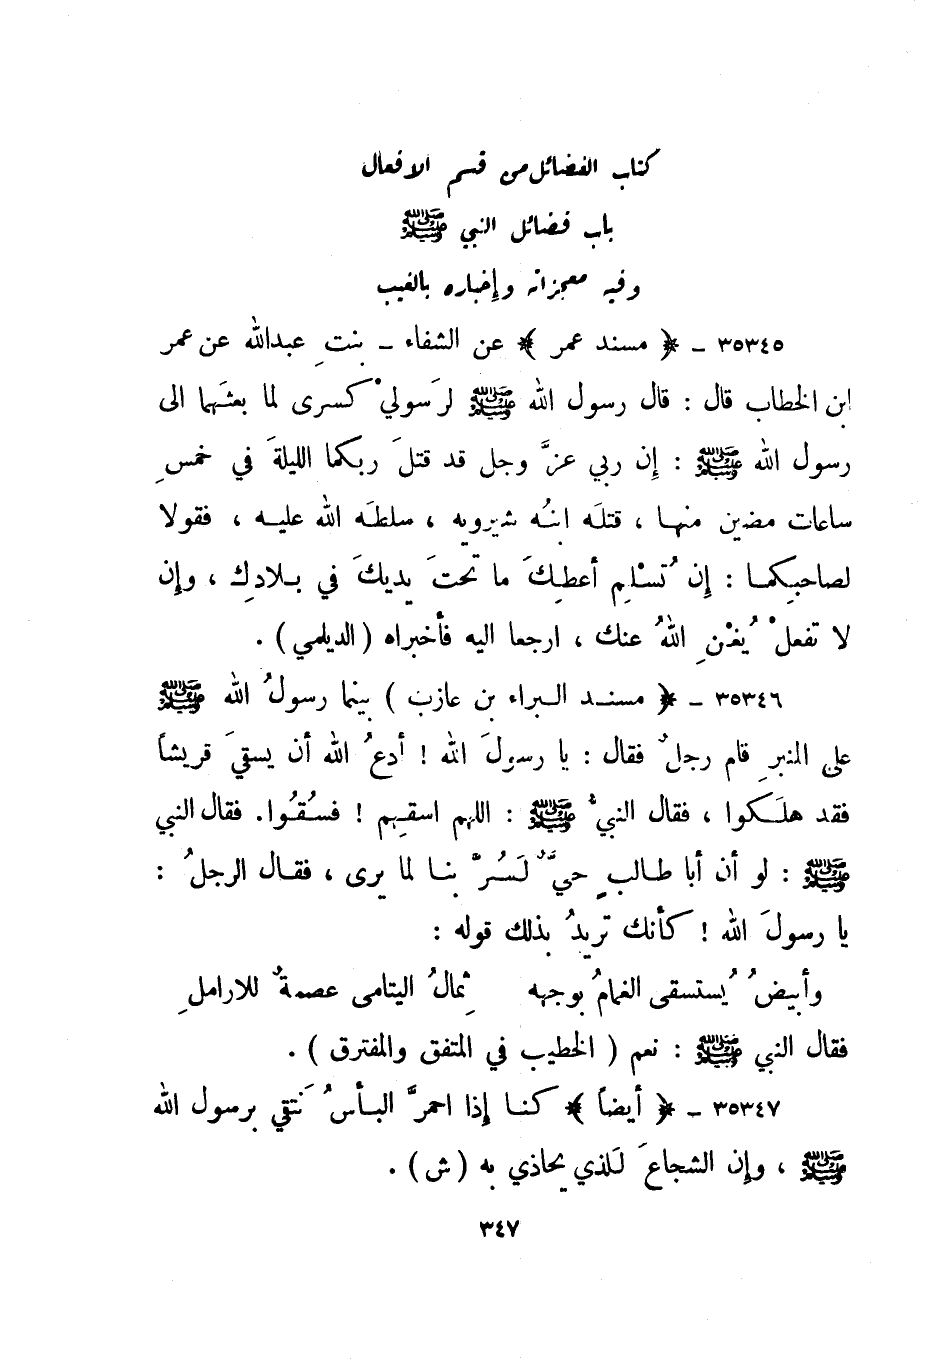 كتاب الفضائل من قسم الافعال
باب فضائل النبي ﷺ
وفيه معجزاته وإخباره بالغيب
٣٥٣٤٥ - ﴿ مسند عمر ﴾ عن الشفاء - بنتِ عبدالله عن عمر
ابن الخطاب قال : قال رسول الله ﷺ لرَسوليْ كسرى لما بعثَهما الى
رسول الله ﷺ : إن ربي عزَّ وجل قد قتلَ ربكما الليلةَ في خمسِ
ساعات مضين منها ، قتلَه ابنُه شيرويه ، سلطَه الله عليه ، فقولا
لصاحبِكما : إن تُسْلِم أعطِكَ ما تحتَ يديكَ في بلادِك ، وإن
لا تفعلْ يُغْنِ اللهُ عنك ، ارجعا اليه فأخبراه ( الديلمي ) .
٣٥٣٤٦ - ﴿ مسند البراء بن عازب ) بينما رسولُ الله ﷺ
على المنبرِ قام رجلٌ فقال : يا رسولَ الله ! أدعُ الله أن يسقيَ قريشاً
فقد هلَكوا ، فقال النبيُّ ﷺ : اللهم اسقِهم ! فسُقُوا. فقال النبي
ﷺ : لو أن أبا طالبٍ حيٌّ لَسُرَّ بنا لما يرى ، فقال الرجلُ :
يا رسولَ الله ! كأنك تريدُ بذلك قوله :
وأبيضُ يُستسقى الغمامُ بوجهه ثِمالُ اليتامى عصمةٌ للاراملِ
فقال النبي ﷺ : نعم ( الخطيب في المتفق والمفترق ) .
٣٥٣٤٧ - ﴿ أيضاً ﴾ كنا إذا احمرَّ البأسُ نَتقي برسول الله
ﷺ ، وإن الشجاعَ لَلذي يحاذي به ( ش ) .
٣٤٧